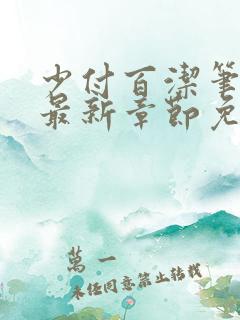 少付百潔筆
最新章節免
萬一
未经同意禁止转载